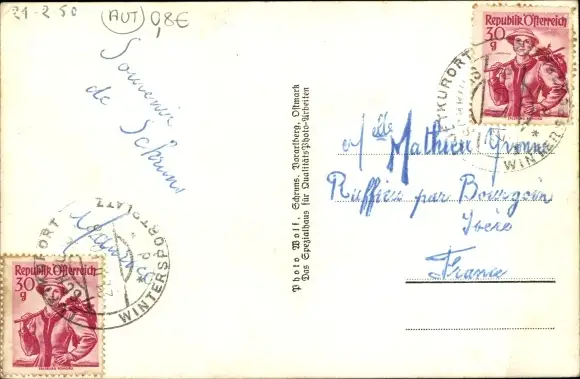 21-2 50
AUT 0,8€
Souvenir
de Schruns
Maurice
Photo Wolf, Schruns, Vorarlberg, Ostmark
Das Spezialhaus für Qualitäts-Photo-Arbeiten
Republik Österreich
30
g
KURORT
WINTERS
Melle Mathieu Yvonne
Ruffieu par Bourgoin
Isère
France
KURORT
WINTERSPORTPLATZ
Republik Österreich
30
g